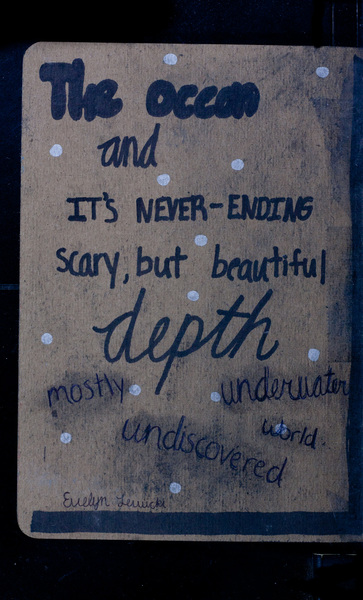 The ocean
and
IT'S NEVER-ENDING
scary, but beautiful
depth
mostly underwater
undiscovered world.
Evelyn